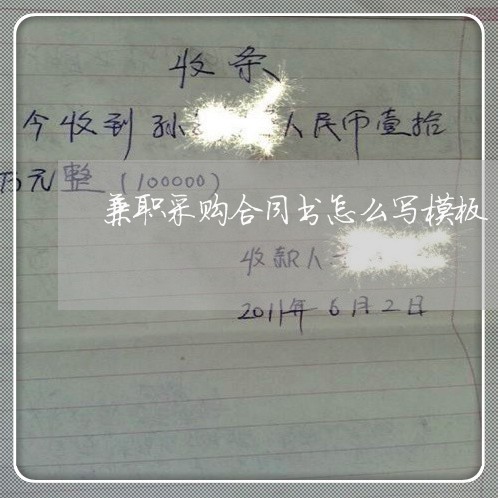 收条
今收到孙 人民币壹拾
万元整(100000)
兼职采购合同书怎么写模板
收款人
2011年6月2日